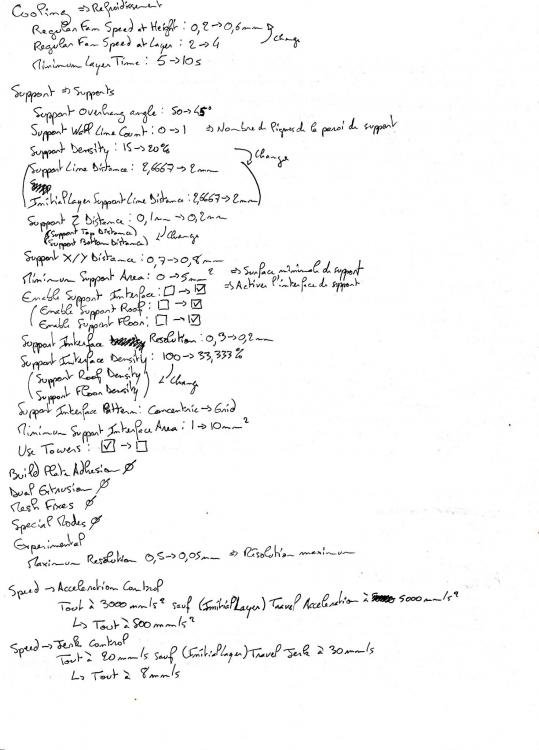 Cooling => Refroidissement
Regular Fan Speed at Height : 0,2 -> 0,6 mm
Regular Fan Speed at Layer : 2 -> 4
change
Minimum Layer Time : 5 -> 10s
Support => Supports
Support Overhang angle : 50 -> 45°
Support Wall Line Count : 0 -> 1 => Nombre de lignes de la paroi de support
Support Density : 15 -> 20%
change
Support Line Distance : 2,6667 -> 2mm
Initial Layer Support Line Distance : 2,6667 -> 2mm
Support Z Distance : 0,1mm -> 0,2mm
(Support Top Distance)
(Support Bottom Distance)
change
Support X/Y Distance : 0,7 -> 0,8mm
Minimum Support Area : 0 -> 5mm² => Surface minimale de support
Enable Support Interface : ☐ -> ☑ => Activer l'interface de support
(Enable Support Roof : ☐ -> ☑
Enable Support Floor : ☐ -> ☑
Support Interface Resolution : 0,3 -> 0,2mm
Support Interface Density : 100 -> 33,333%
(Support Roof Density)
(Support Floor Density)
change
Support Interface Pattern : Concentric -> Grid
Minimum Support Interface Area : 1 -> 10mm²
Use Towers : ☑ -> ☐
Build Plate Adhesion Ø
Dual Extrusion Ø
Mesh Fixes Ø
Special Modes Ø
Experimental
Maximum Resolution 0,5 -> 0,05mm => Résolution maximum
Speed -> Acceleration Control
Tout à 3000 mm/s² sauf (Initial Layer) Travel Acceleration à 5000 mm/s²
↳ Tout à 500 mm/s²
Speed -> Jerk Control
Tout à 20 mm/s sauf (Initial Layer) Travel Jerk à 30 mm/s
↳ Tout à 8 mm/s